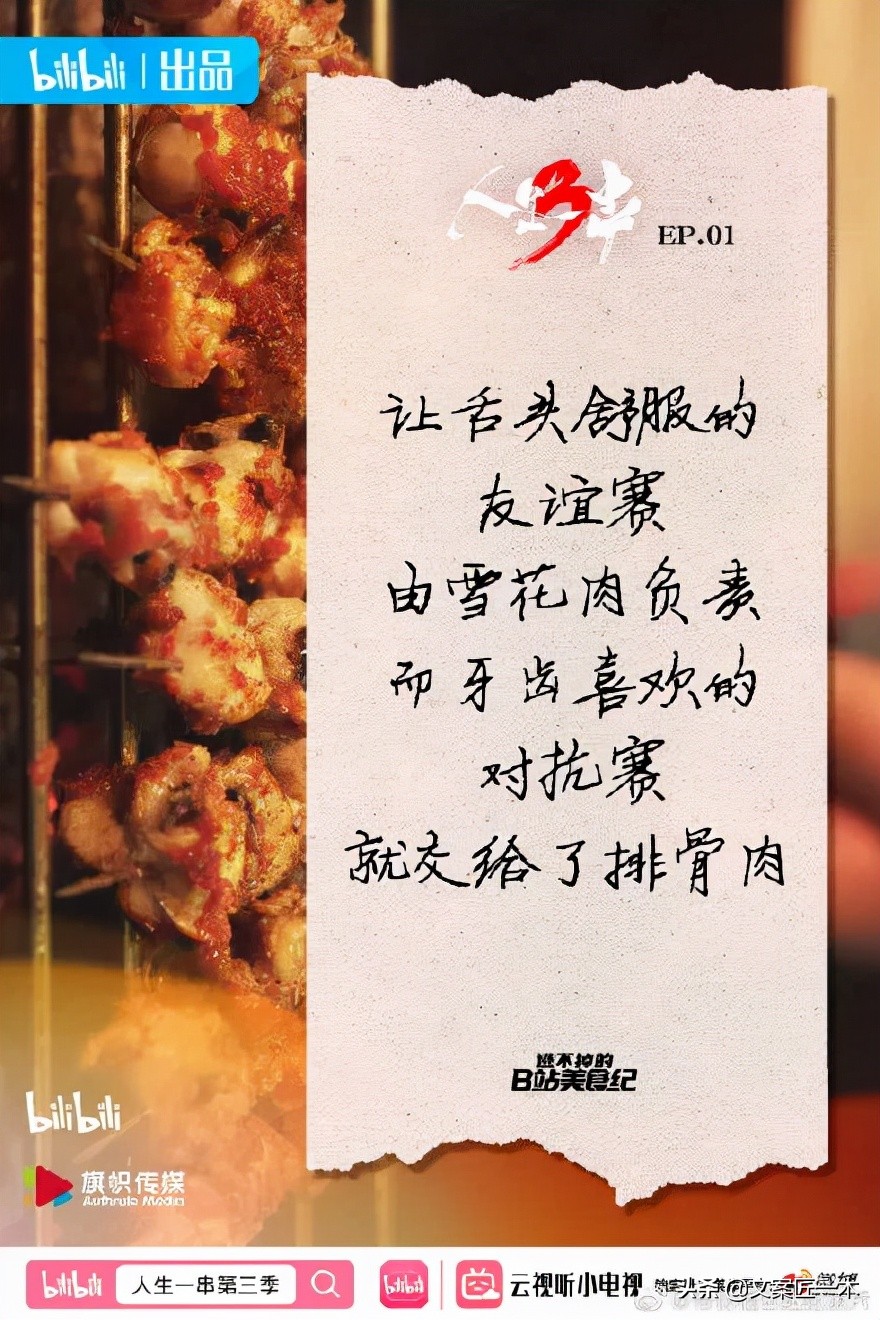 bilibili | 出品
人生3串 EP.01
让舌头舒服的
友谊赛
由雪花肉负责
而牙齿喜欢的
对抗赛
就交给了排骨肉
逃不掉的
B站美食纪
bilibili
旗帜传媒
bilibili 人生一串第三季 bilibili 云视听小电视
头条 @文案匠二本